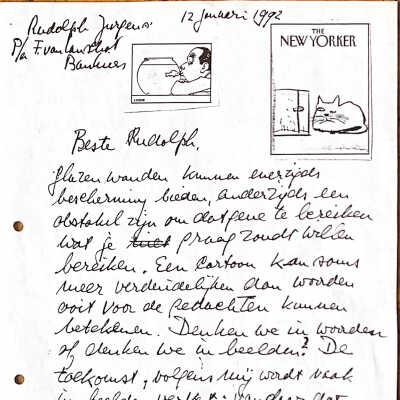 Rudolph Jurgens
12 januari 1992
P/a F. van Lanschot
Bankiers
THE
NEW YORKER
Beste Rudolph,
Glazen wanden kunnen enerzijds
bescherming bieden, anderzijds een
obstakel zijn om datgene te bereiken
wat je niet graag zoudt willen
bereiken. Een cartoon kan soms
meer verduidelijken dan woorden
ooit voor de gedachten kunnen
betekenen. Denken we in woorden
of denken we in beelden? De
toekomst, volgens mij wordt vaak
in beelden